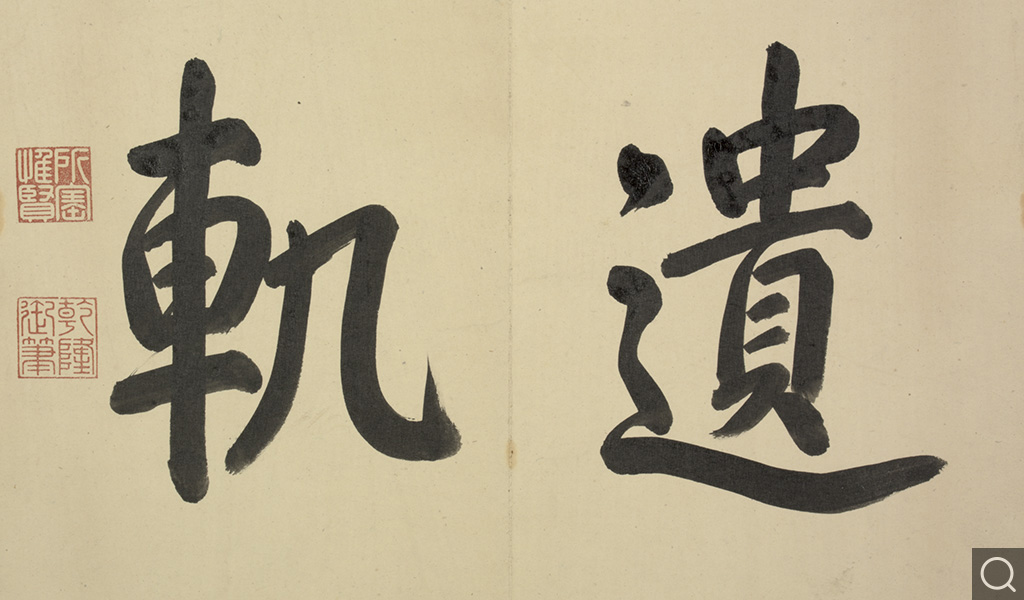 遺軌
所寶惟賢
乾隆御筆